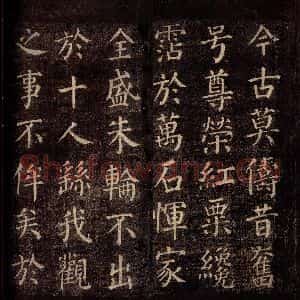 今古莫儔昔奮
号尊榮紅粟纔
霑於萬石惲家
全盛朱輪不出
於十人繇我觀
之事不侔矣於